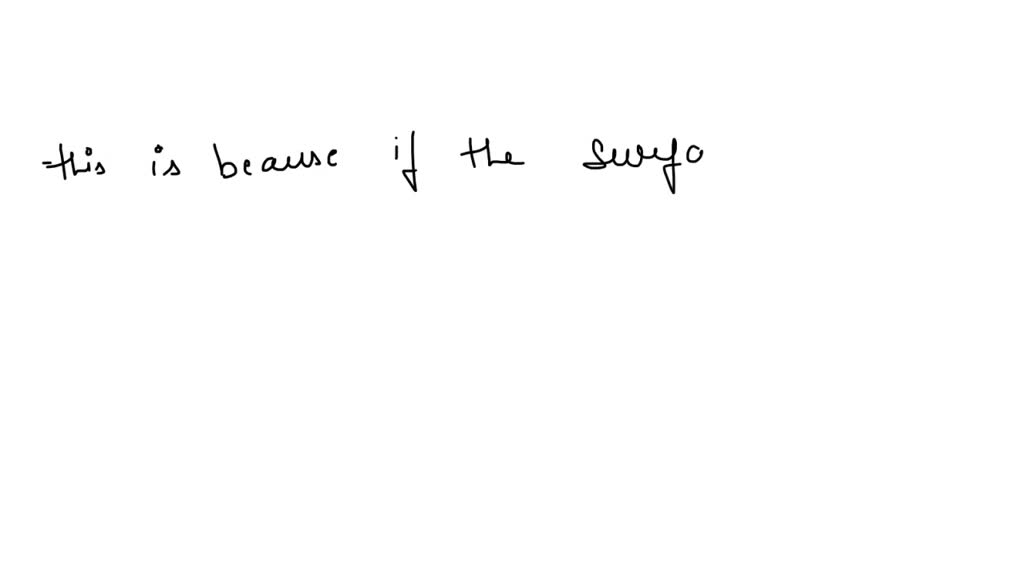 this is because if the surfa